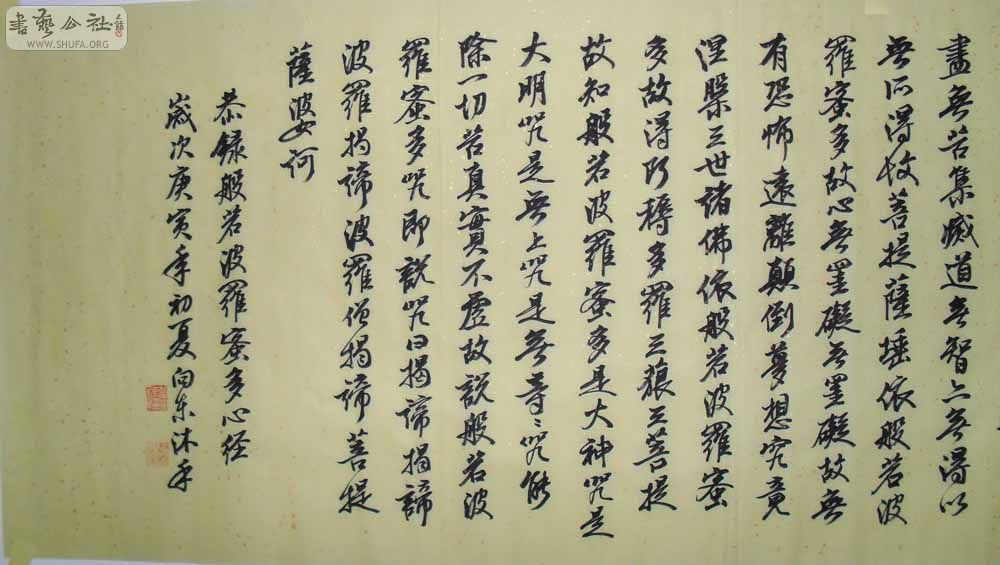 書藝公社
WWW.SHUFA.ORG
盡無苦集滅道無智亦無得以
無所得故菩提薩埵依般若波
羅蜜多故心無罣礙無罣礙故無
有恐怖遠離顛倒夢想究竟
涅槃三世諸佛依般若波羅蜜
多故得阿耨多羅三藐三菩提
故知般若波羅蜜多是大神咒是
大明咒是無上咒是無等〻咒能
除一切苦真實不虛故說般若波
羅蜜多咒即說咒曰揭諦揭諦
波羅揭諦波羅僧揭諦菩提
薩婆訶
恭録般若波羅蜜多心经
歲次庚寅年初夏向东沐手